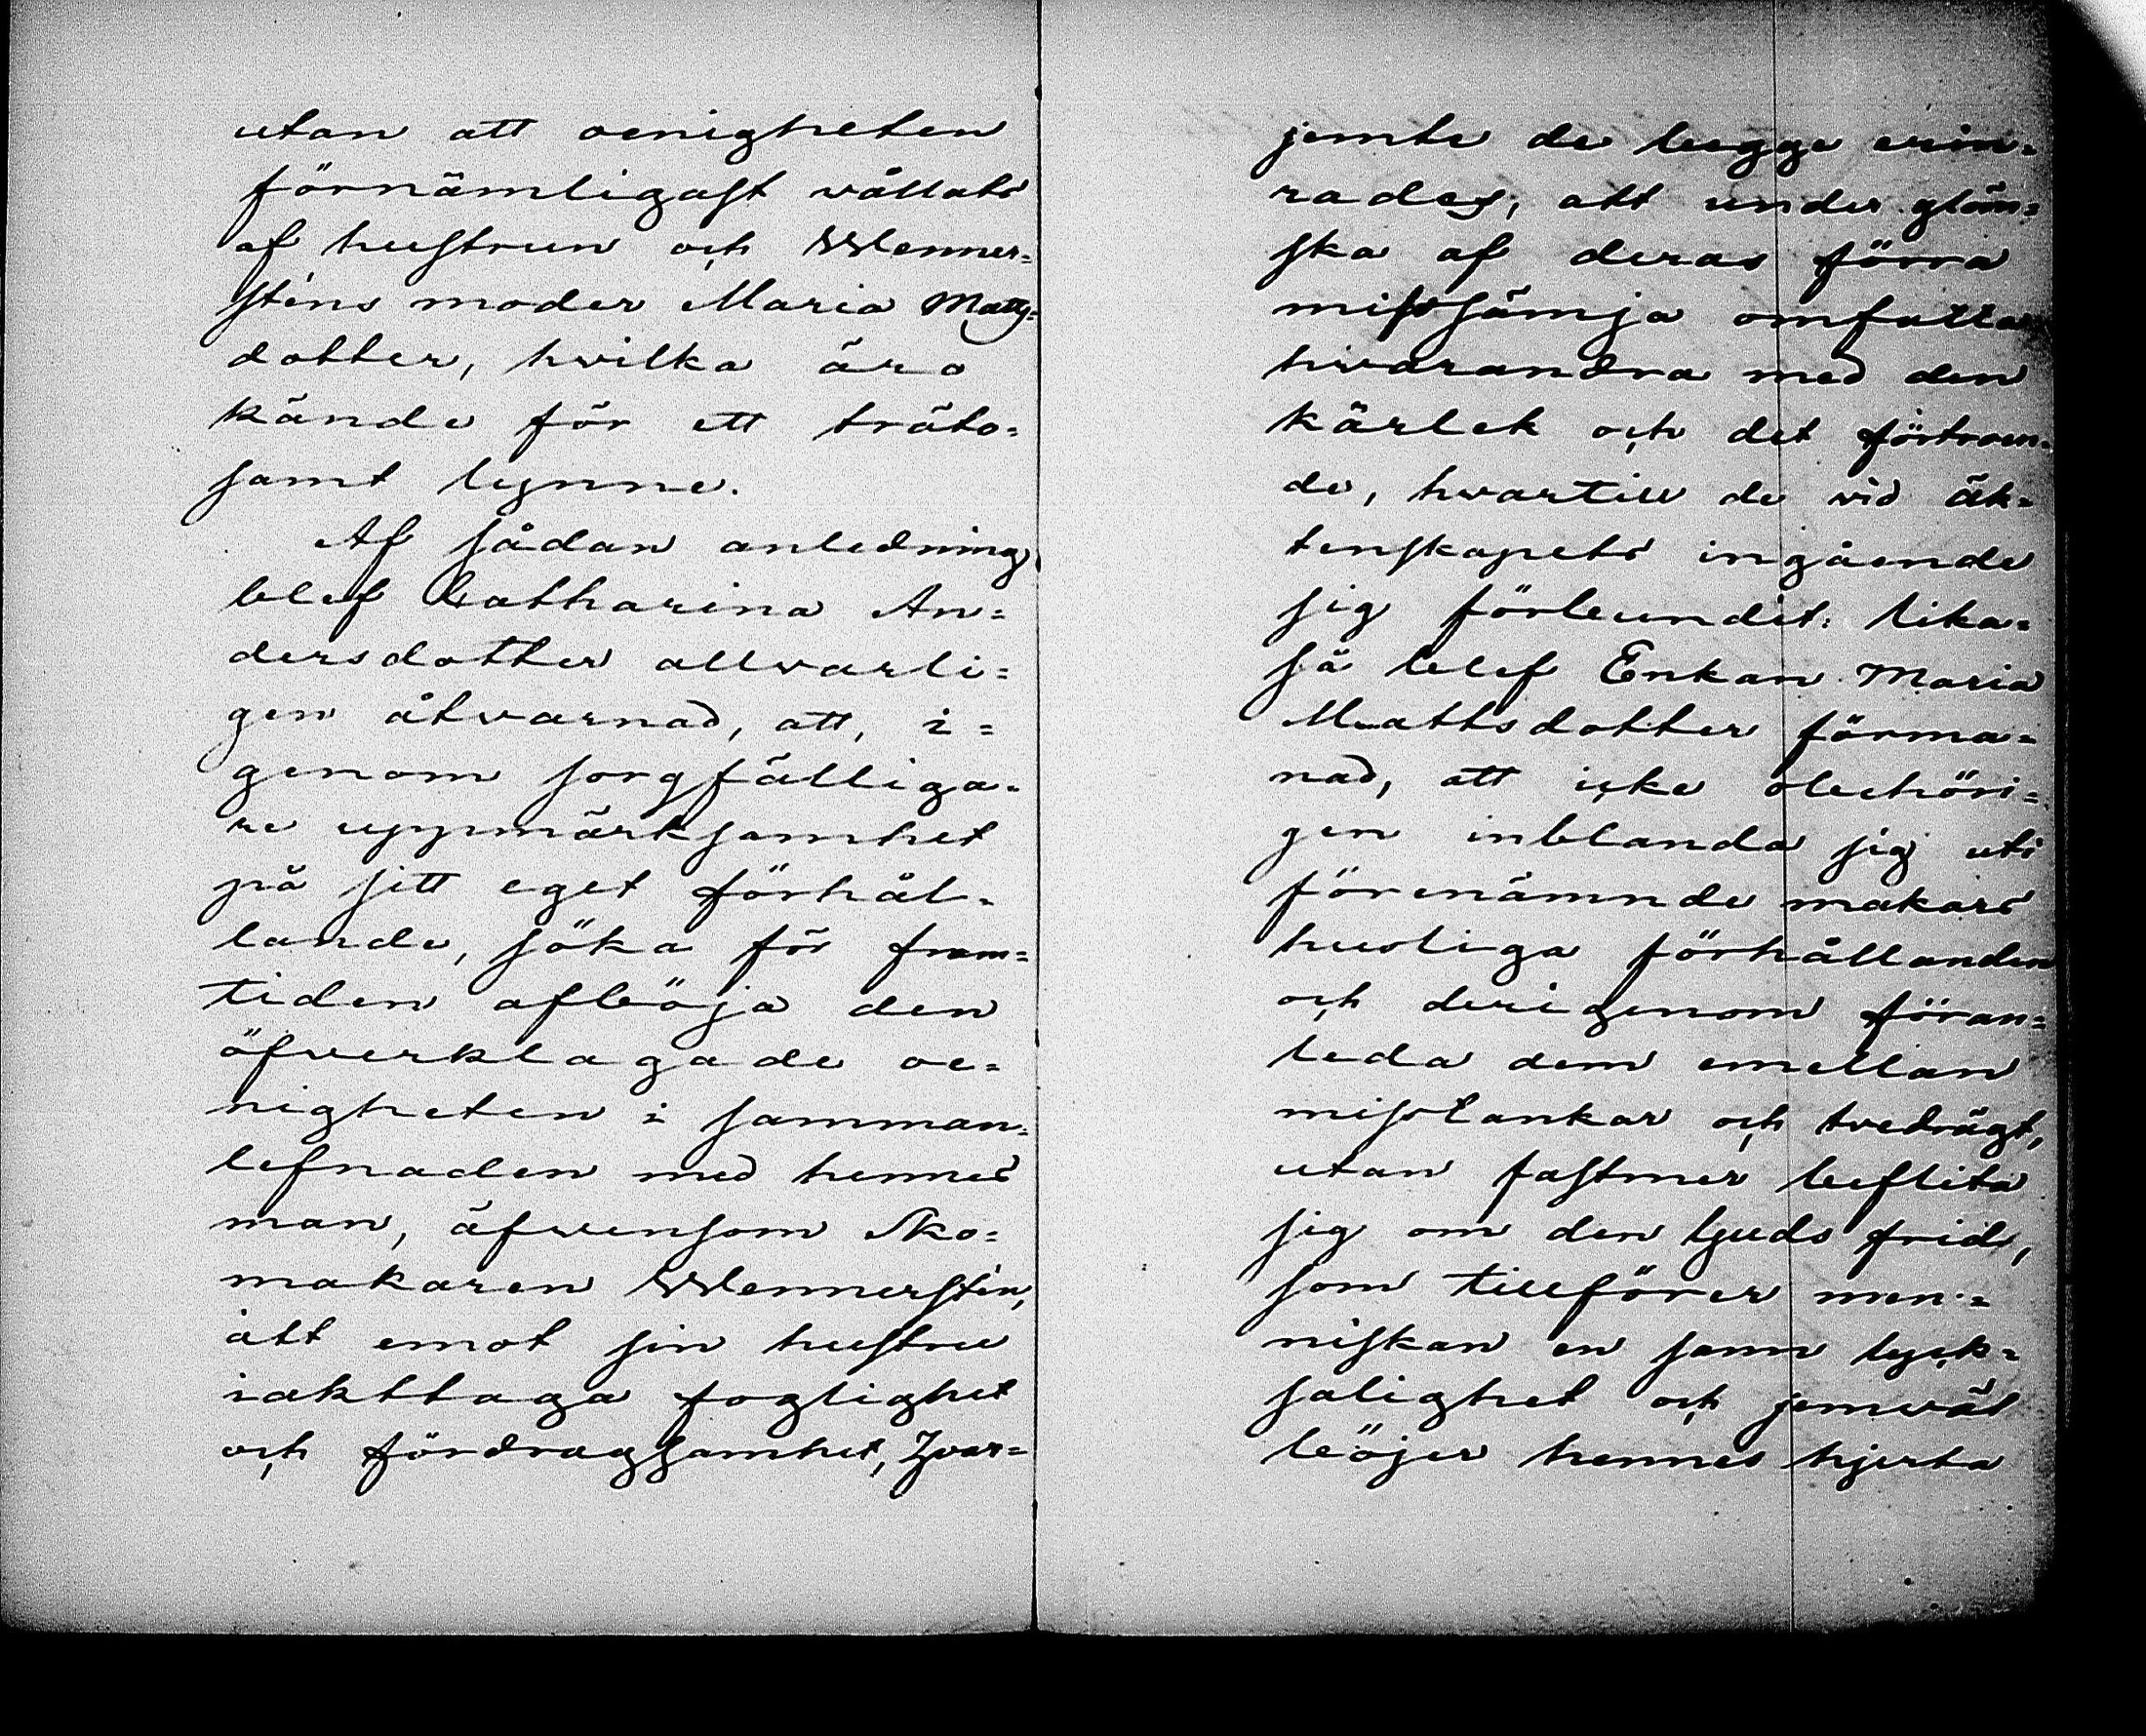 utan att oenigheten
förnämligast vållats
af hustrun och Wenner=
sténs moder Maria Matts=
dotter, hvilka äro
kände för ett träto=
samt lynne.
Af sådan anledning
blef Catharina An=
dersdotter allvarli=
gen åtvarnad, att, i=
genom sorgfälliga=
re uppmärksamhet
på sitt eget förhål=
lande, söka för fram=
tiden afböja den
öfverklagade oe=
nigheten i samman=
lefnaden med hennes
man, äfvensom Sko=
makaren Wennerstén,
att emot sin hustru
iakttaga foglighet
och fördragsamhet, hvar=
jemte de begge erin=
rades, att under glöm=
ska af deras förra
misssämja omfatta
hvarandra med den
kärlek och det förtroen=
de, hvartill de vid äk=
tenskapets ingående
sig förbundit: lika=
så blef Enkan Maria
Mattsdotter förma=
nad, att icke obehöri=
gen inblanda sig uti
förenämnde makars
husliga förhållanden
och derigenom föran=
leda dem emellan
misstankar och tvedrägt,
utan fastmer beflita
sig om den Guds frid,
som tillförer men=
niskan en sann lyck=
salighet och jemväl
böjer hennes hjerta